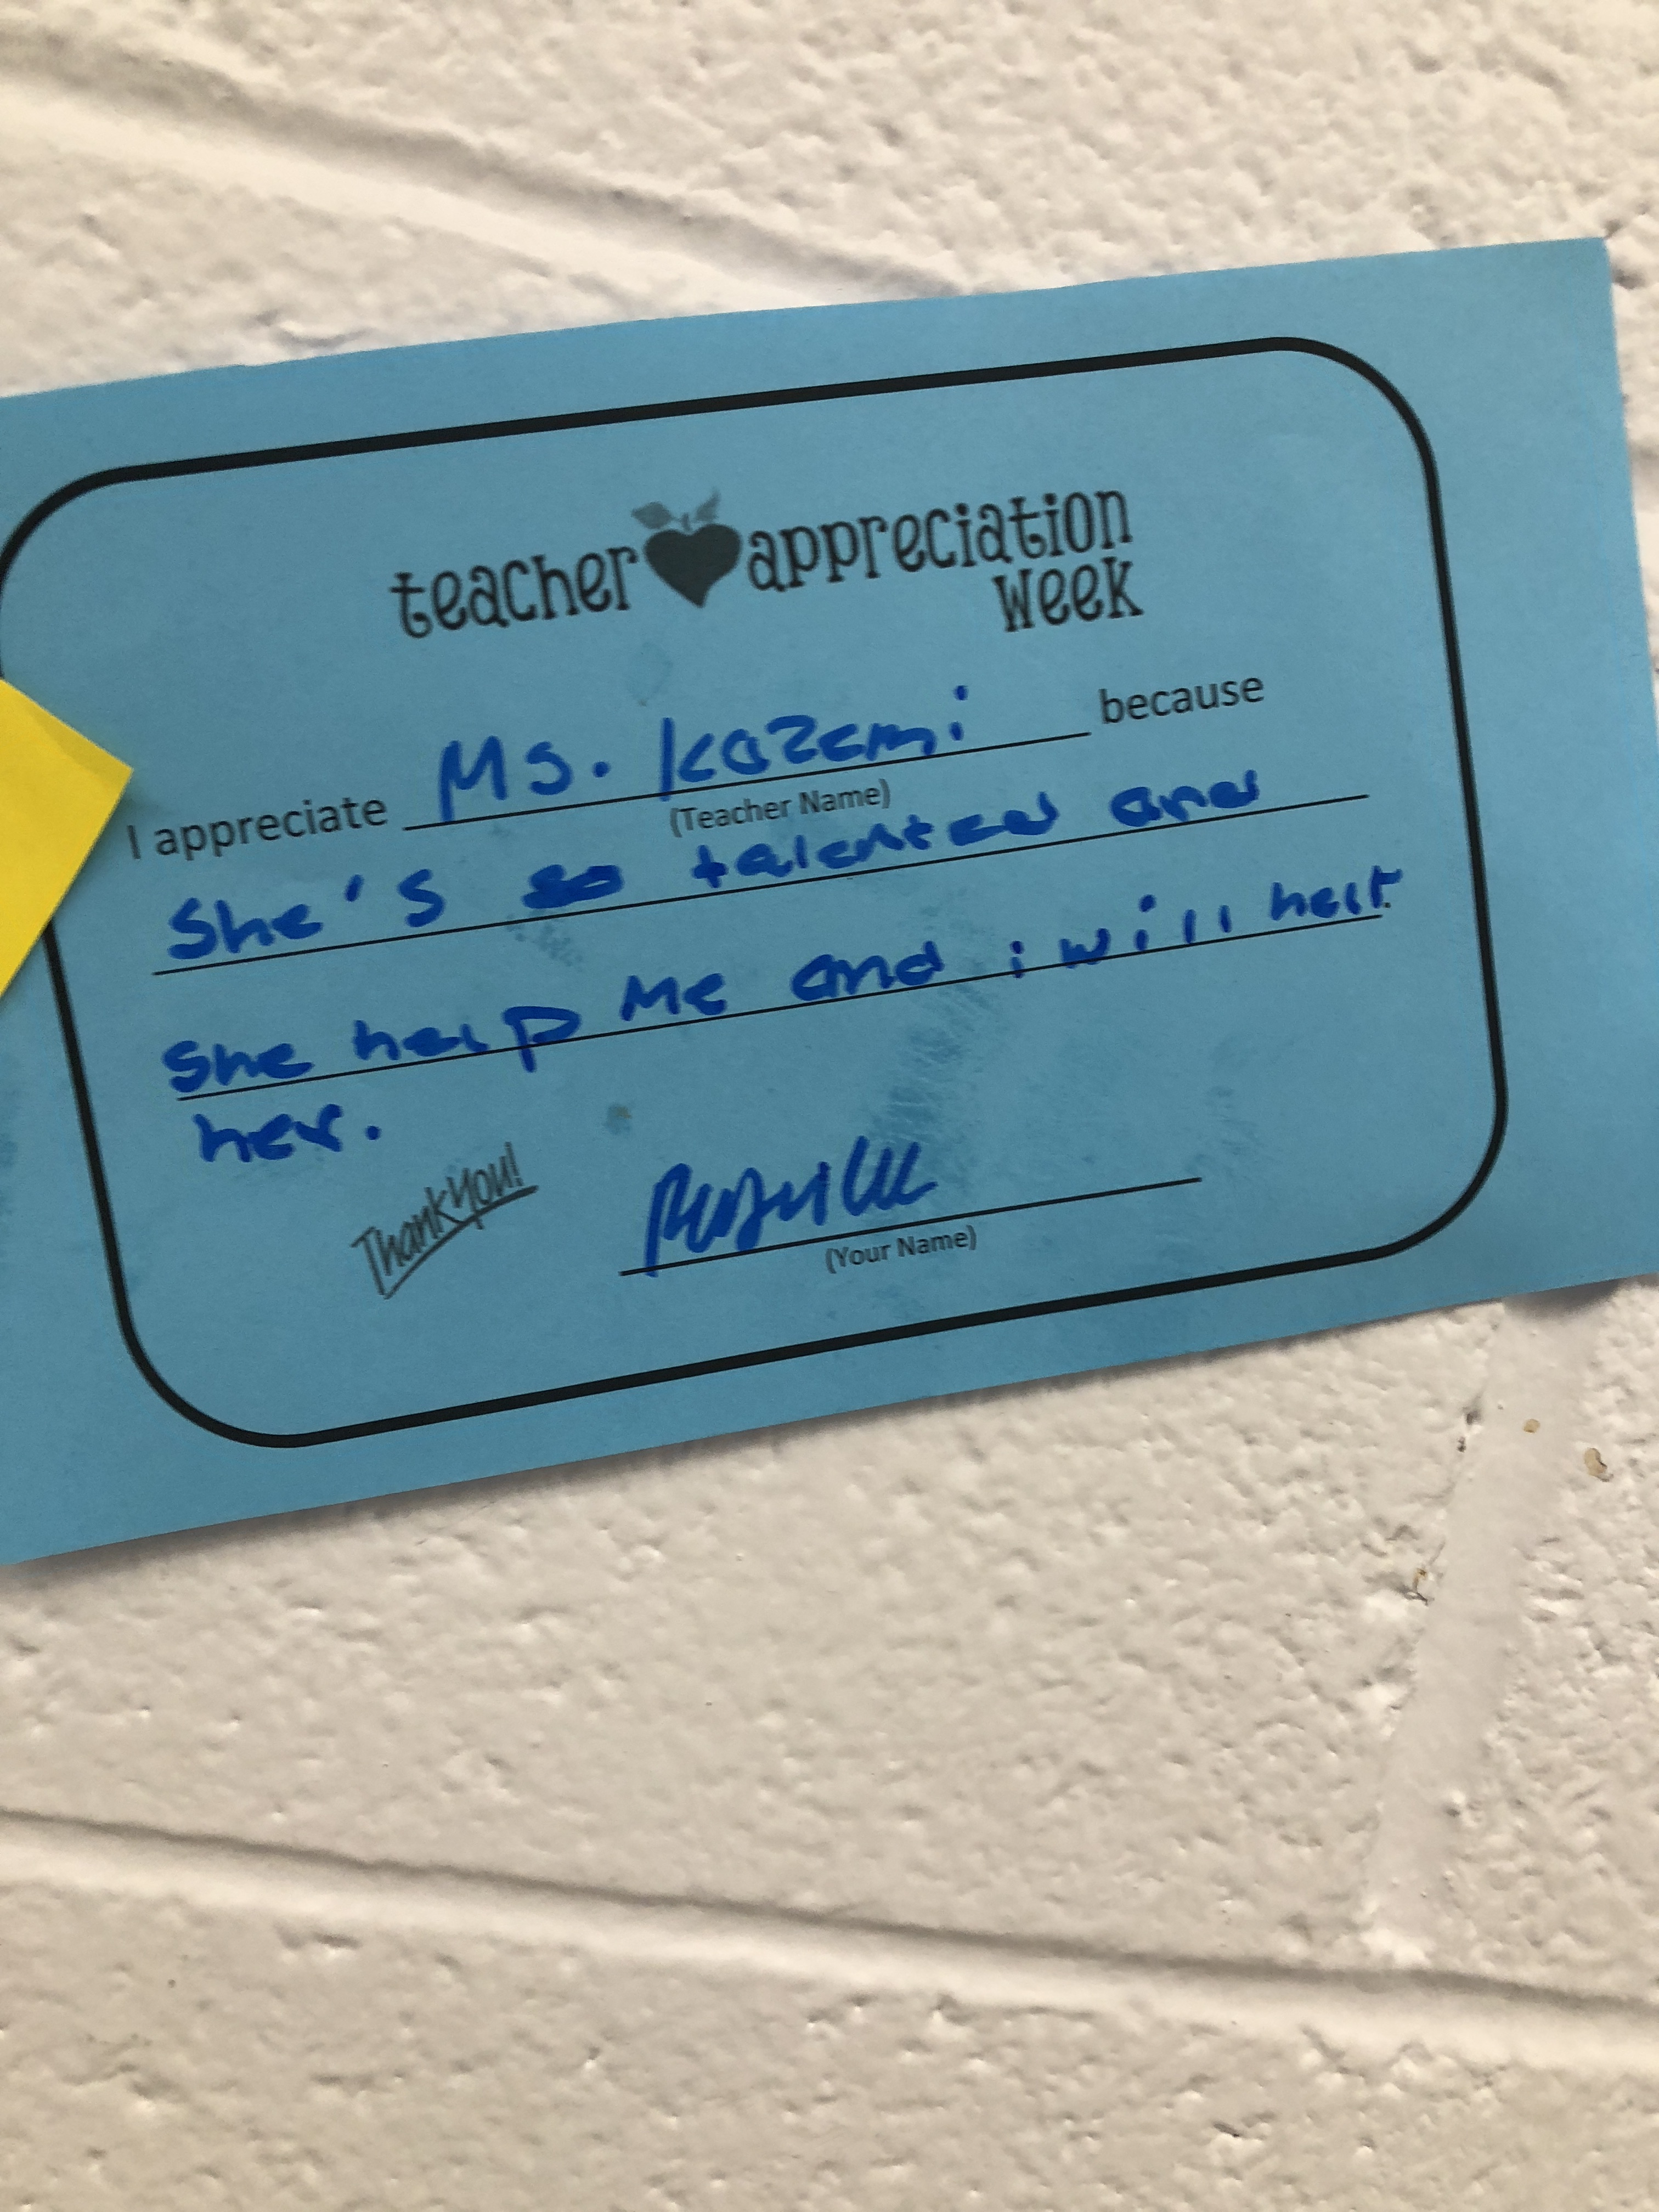 teacher appreciation
week
I appreciate Ms. Kazemi because
(Teacher Name)
She's so talented and
She help Me and i will help
her.
Thank You!
(Your Name)